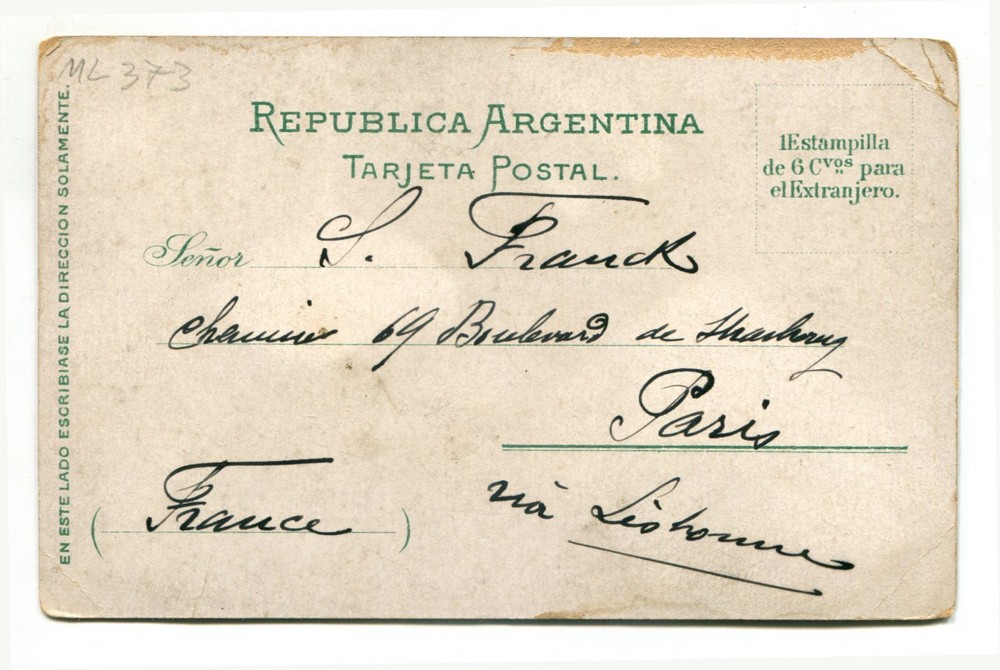 ML 373
REPUBLICA ARGENTINA
TARJETA POSTAL.
1 Estampilla
de 6 Cvos para
el Extranjero.
EN ESTE LADO ESCRIBIASE LA DIRECCION SOLAMENTE.
Señor S. Franck
69 Boulevard de Strasbourg
Paris
(France)
viâ Lisbonne